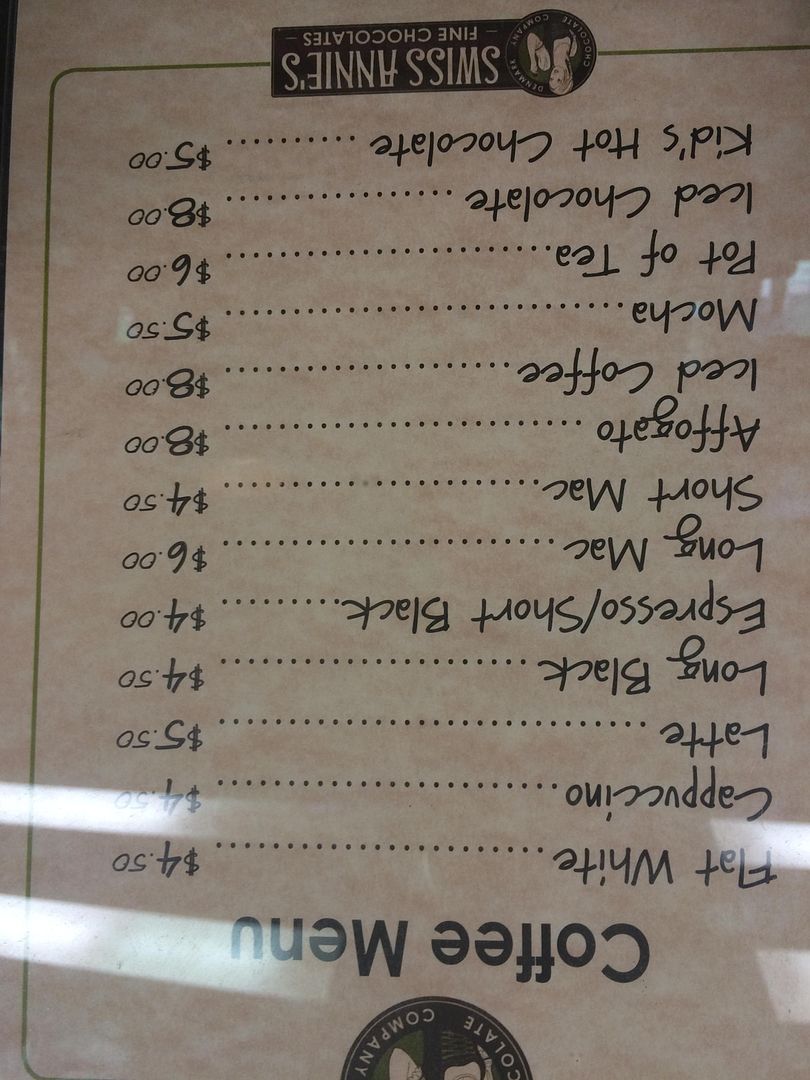 COLATE COMPANY
Coffee Menu
Flat White ........................ $4.50
Cappuccino ........................ $4.50
Latte ............................... $5.50
Long Black ...................... $4.50
Espresso/Short Black ......... $4.00
Long Mac ........................ $6.00
Short Mac ....................... $4.50
Affogato .......................... $8.00
Iced Coffee ..................... $8.00
Mocha ............................. $5.50
Pot of Tea ........................ $6.00
Iced Chocolate ................. $8.00
Kid's Hot Chocolate .......... $5.00
DENMARK CHOCOLATE COMPANY
SWISS ANNIE'S
– FINE CHOCOLATES –